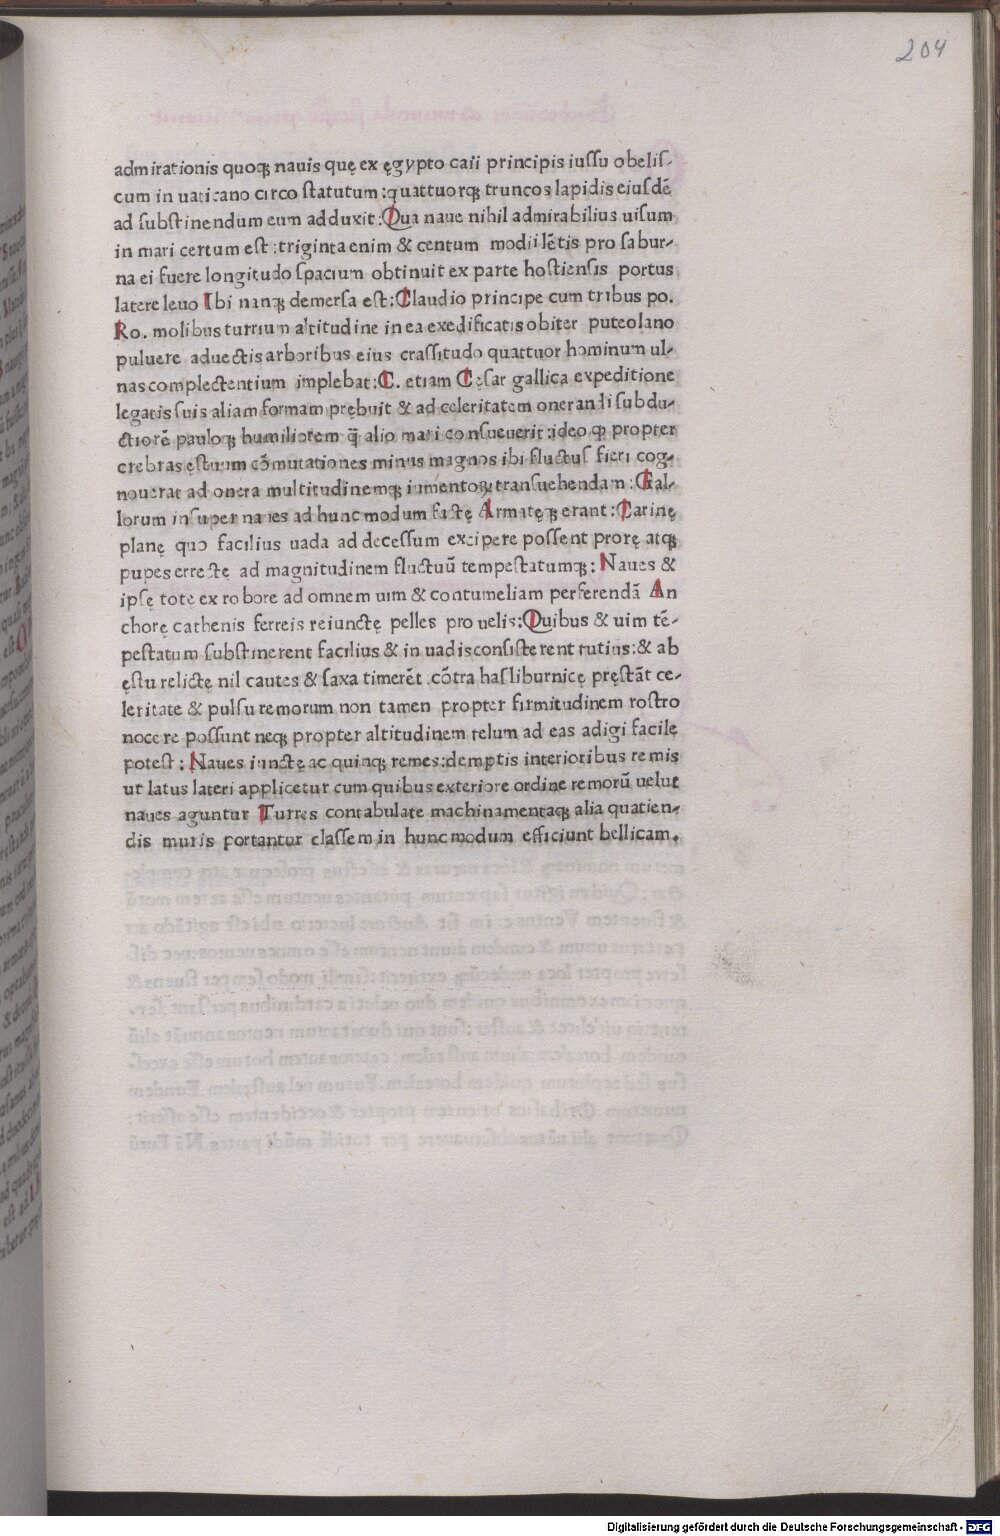 204
admirationis quoqꝫ nauis quę ex ęgypto caii principis iussu obelis-
cum in uaticano circo statutum: quattuorqꝫ truncos lapidis eiusdē
ad substinendum eum adduxit: Qua naue nihil admirabilius uisum
in mari certum est: triginta enim & centum modii lētis pro sabur-
na ei fuere longitudo spacium obtinuit ex parte hostiensis portus
latere leuo Ibi nanqꝫ demersa est: Claudio principe cum tribus po.
Ro. molibus turrium altitudine in ea exedificatis obiter puteolano
puluere aduectis arboribus eius crassitudo quattuor hominum ul-
nas complectentium implebat: C. etiam Cęsar gallica expeditione
legatis suis aliam formam prębuit & ad celeritatem onerandi subdu-
ctiorē pauloqꝫ humiliorem q̄ alio mari consueuerit: ideo qꝫ propter
crebras ęstuum cōmutationes minus magnos ibi fluctus fieri cog-
nouerat ad onera multitudinemqꝫ iumentoꝝ transuehendam: Gal-
lorum insuper naues ad hunc modum factę Armatęqꝫ erant: Carinę
planę quo facilius uada ad decessum excipere possent prorę atqꝫ
pupes errectę ad magnitudinem fluctuū tempestatumqꝫ: Naues &
ipsę totę ex robore ad omnem uim & contumeliam perferendā An
chorę cathenis ferreis reiunctę pelles pro uelis: Quibus & uim tē-
pestatum substinerent facilius & in uadis consisterent tutius: & ab
ęstu relictę nil cautes & saxa timerēt. cōtra has liburnicę pręstāt ce-
leritate & pulsu remorum non tamen propter firmitudinem rostro
nocere possunt neqꝫ propter altitudinem telum ad eas adigi facile
potest: Naues iunctę ac quinqꝫ remes: demptis interioribus remis
ut latus lateri applicetur cum quibus exteriore ordine remorū uelut
naues aguntur Turres contabulate machinamentaqꝫ alia quatien-
dis muris portantur classem in hunc modum efficiunt bellicam.
Digitalisierung gefördert durch die Deutsche Forschungsgemeinschaft - DFG